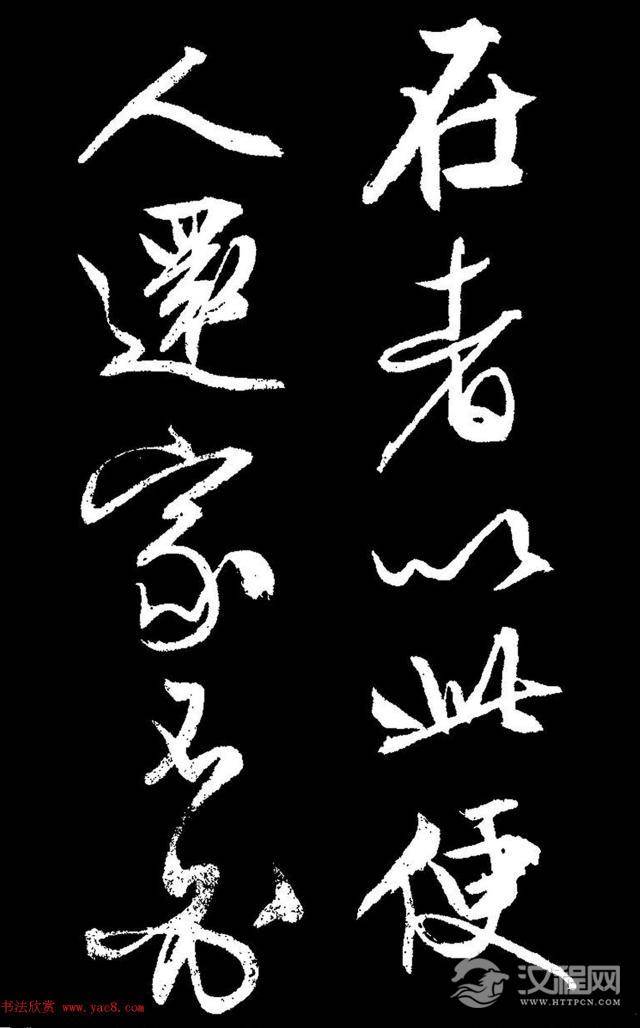 在者以此便
人還家不
汉程网
WWW.HTTPCN.COM
书法欣赏 www.yac8.com